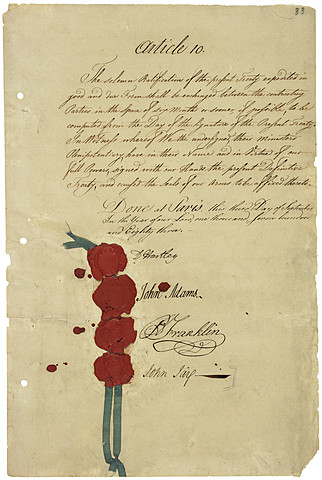 33
Article 10.
The solemn Ratifications of the present Treaty expedited in
good and due Form shall be exchanged between the contracting
Parties in the Space of Six Months or sooner if possible to be
computed from the Day of the Signature of the present Treaty.
In Witness whereof We the undersigned their Ministers
Plenipotentiary have in their Name and in Virtue of our
Full Powers signed with our Hands the present Definitive
Treaty, and caused the Seals of our Arms to be affix'd thereto.
Done at Paris, this third Day of September,
In the Year of our Lord one thousand seven hundred
and Eighty three.
D Hartley
John Adams.
B Franklin
John Jay